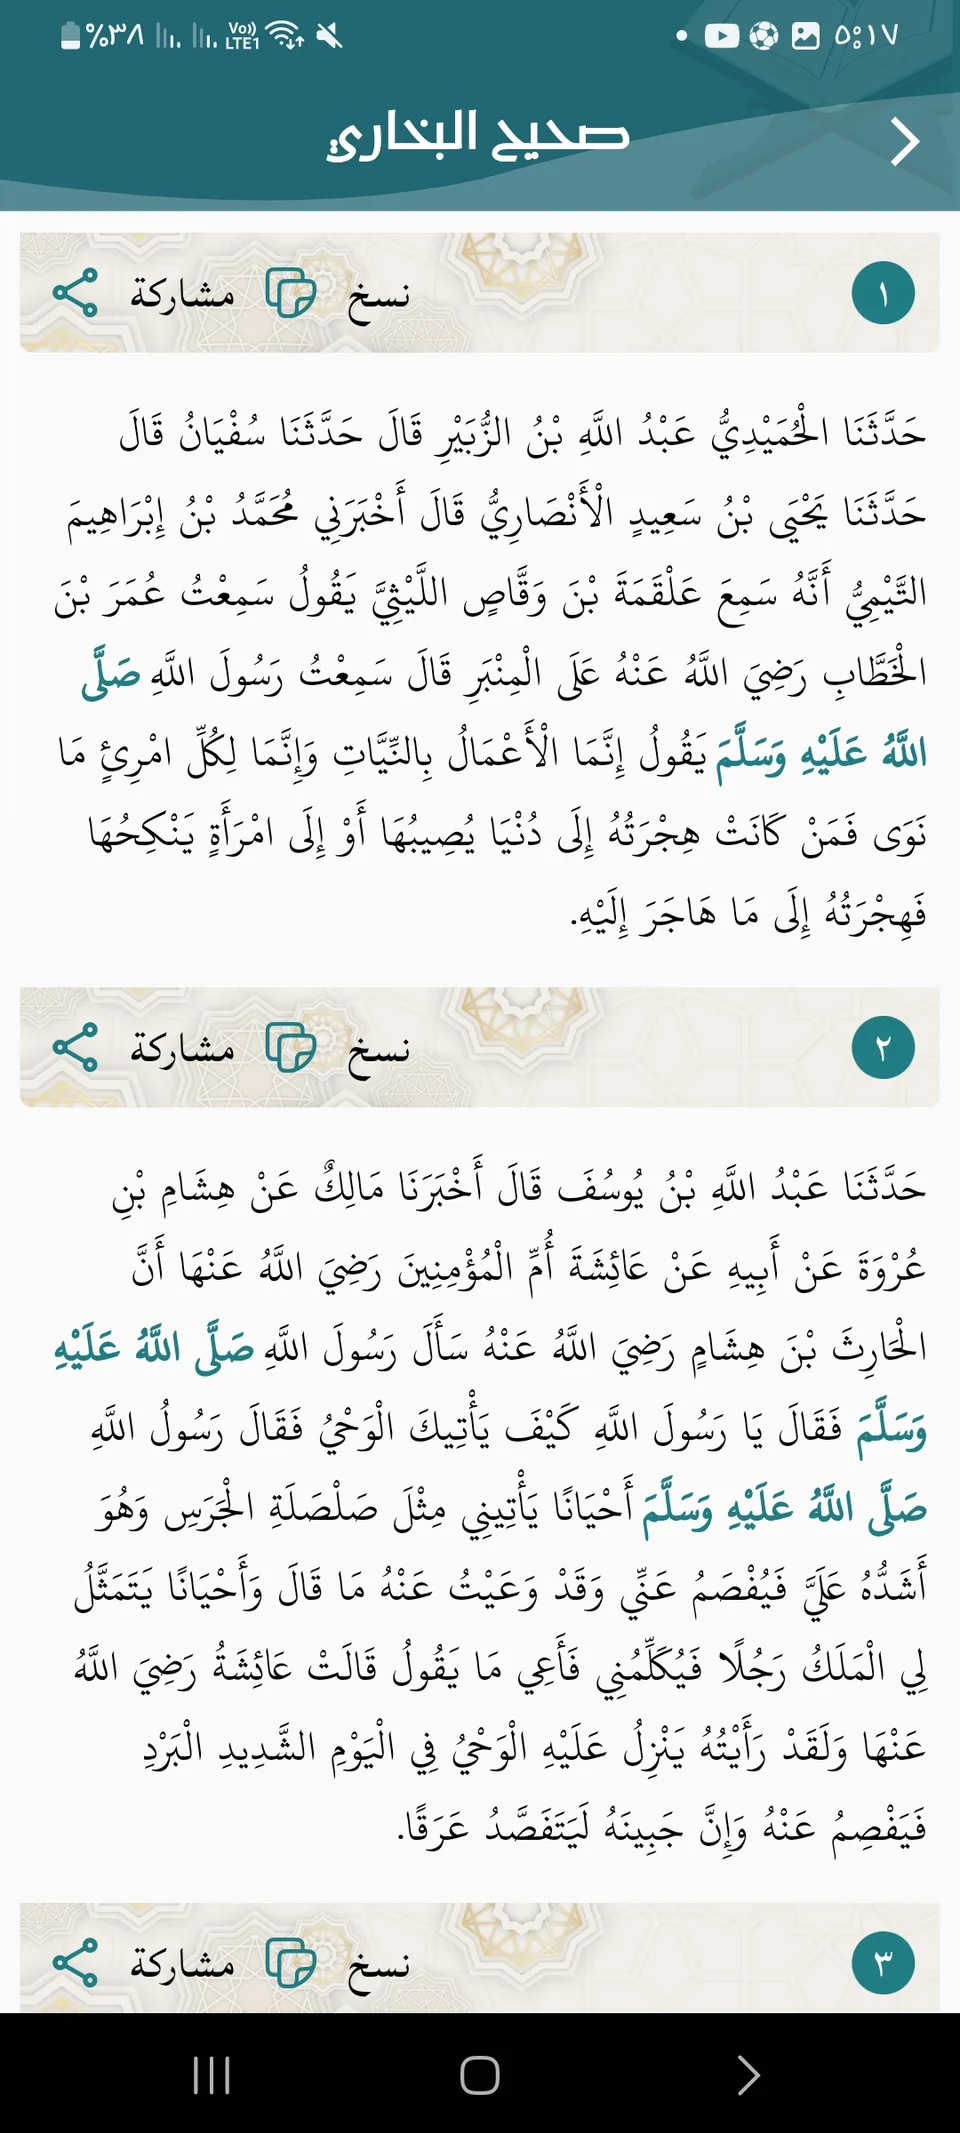 ٥:١٧
Vo)) LTE1
%٣٨
صحيح البخاري
١
نسخ
مشاركة
حَدَّثَنَا الْحُمَيْدِيُّ عَبْدُ اللَّهِ بْنُ الزُّبَيْرِ قَالَ حَدَّثَنَا سُفْيَانُ قَالَ
حَدَّثَنَا يَحْيَى بْنُ سَعِيدٍ الْأَنْصَارِيُّ قَالَ أَخْبَرَنِي مُحَمَّدُ بْنُ إِبْرَاهِيمَ
التَّيْمِيُّ أَنَّهُ سَمِعَ عَلْقَمَةَ بْنَ وَقَّاصٍ اللَّيْثِيَّ يَقُولُ سَمِعْتُ عُمَرَ بْنَ
الْخَطَّابِ رَضِيَ اللَّهُ عَنْهُ عَلَى الْمِنْبَرِ قَالَ سَمِعْتُ رَسُولَ اللَّهِ صَلَّى
اللَّهُ عَلَيْهِ وَسَلَّمَ يَقُولُ إِنَّمَا الْأَعْمَالُ بِالنِّيَّاتِ وَإِنَّمَا لِكُلِّ امْرِئٍ مَا
نَوَى فَمَنْ كَانَتْ هِجْرَتُهُ إِلَى دُنْيَا يُصِيبُهَا أَوْ إِلَى امْرَأَةٍ يَنْكِحُهَا
فَهِجْرَتُهُ إِلَى مَا هَاجَرَ إِلَيْهِ.
٢
نسخ
مشاركة
حَدَّثَنَا عَبْدُ اللَّهِ بْنُ يُوسُفَ قَالَ أَخْبَرَنَا مَالِكٌ عَنْ هِشَامِ بْنِ
عُرْوَةَ عَنْ أَبِيهِ عَنْ عَائِشَةَ أُمِّ الْمُؤْمِنِينَ رَضِيَ اللَّهُ عَنْهَا أَنَّ
الْحَارِثَ بْنَ هِشَامٍ رَضِيَ اللَّهُ عَنْهُ سَأَلَ رَسُولَ اللَّهِ صَلَّى اللَّهُ عَلَيْهِ
وَسَلَّمَ فَقَالَ يَا رَسُولَ اللَّهِ كَيْفَ يَأْتِيكَ الْوَحْيُ فَقَالَ رَسُولُ اللَّهِ
صَلَّى اللَّهُ عَلَيْهِ وَسَلَّمَ أَحْيَانًا يَأْتِينِي مِثْلَ صَلْصَلَةِ الْجَرَسِ وَهُوَ
أَشَدُّهُ عَلَيَّ فَيُفْصَمُ عَنِّي وَقَدْ وَعَيْتُ عَنْهُ مَا قَالَ وَأَحْيَانًا يَتَمَثَّلُ
لِي الْمَلَكُ رَجُلًا فَيُكَلِّمُنِي فَأَعِي مَا يَقُولُ قَالَتْ عَائِشَةُ رَضِيَ اللَّهُ
عَنْهَا وَلَقَدْ رَأَيْتُهُ يَنْزِلُ عَلَيْهِ الْوَحْيُ فِي الْيَوْمِ الشَّدِيدِ الْبَرْدِ
فَيَفْصِمُ عَنْهُ وَإِنَّ جَبِينَهُ لَيَتَفَصَّدُ عَرَقًا.
٣
نسخ
مشاركة